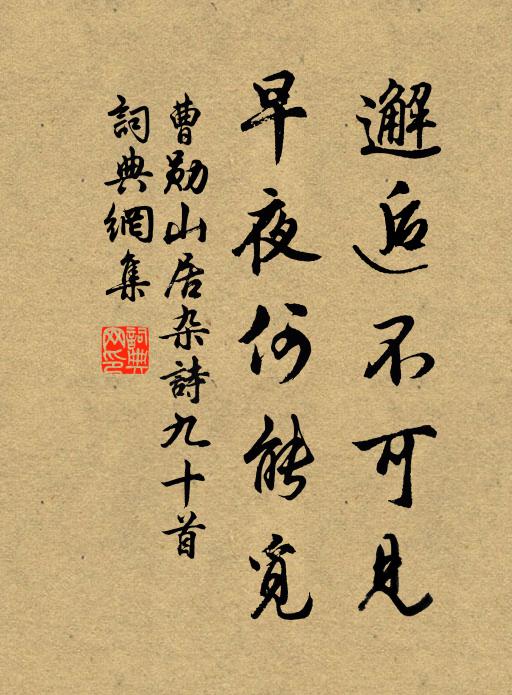 邂逅不可見
早夜何能覓
曹勛山居杂詩九十首
詞典網集
詞典網印